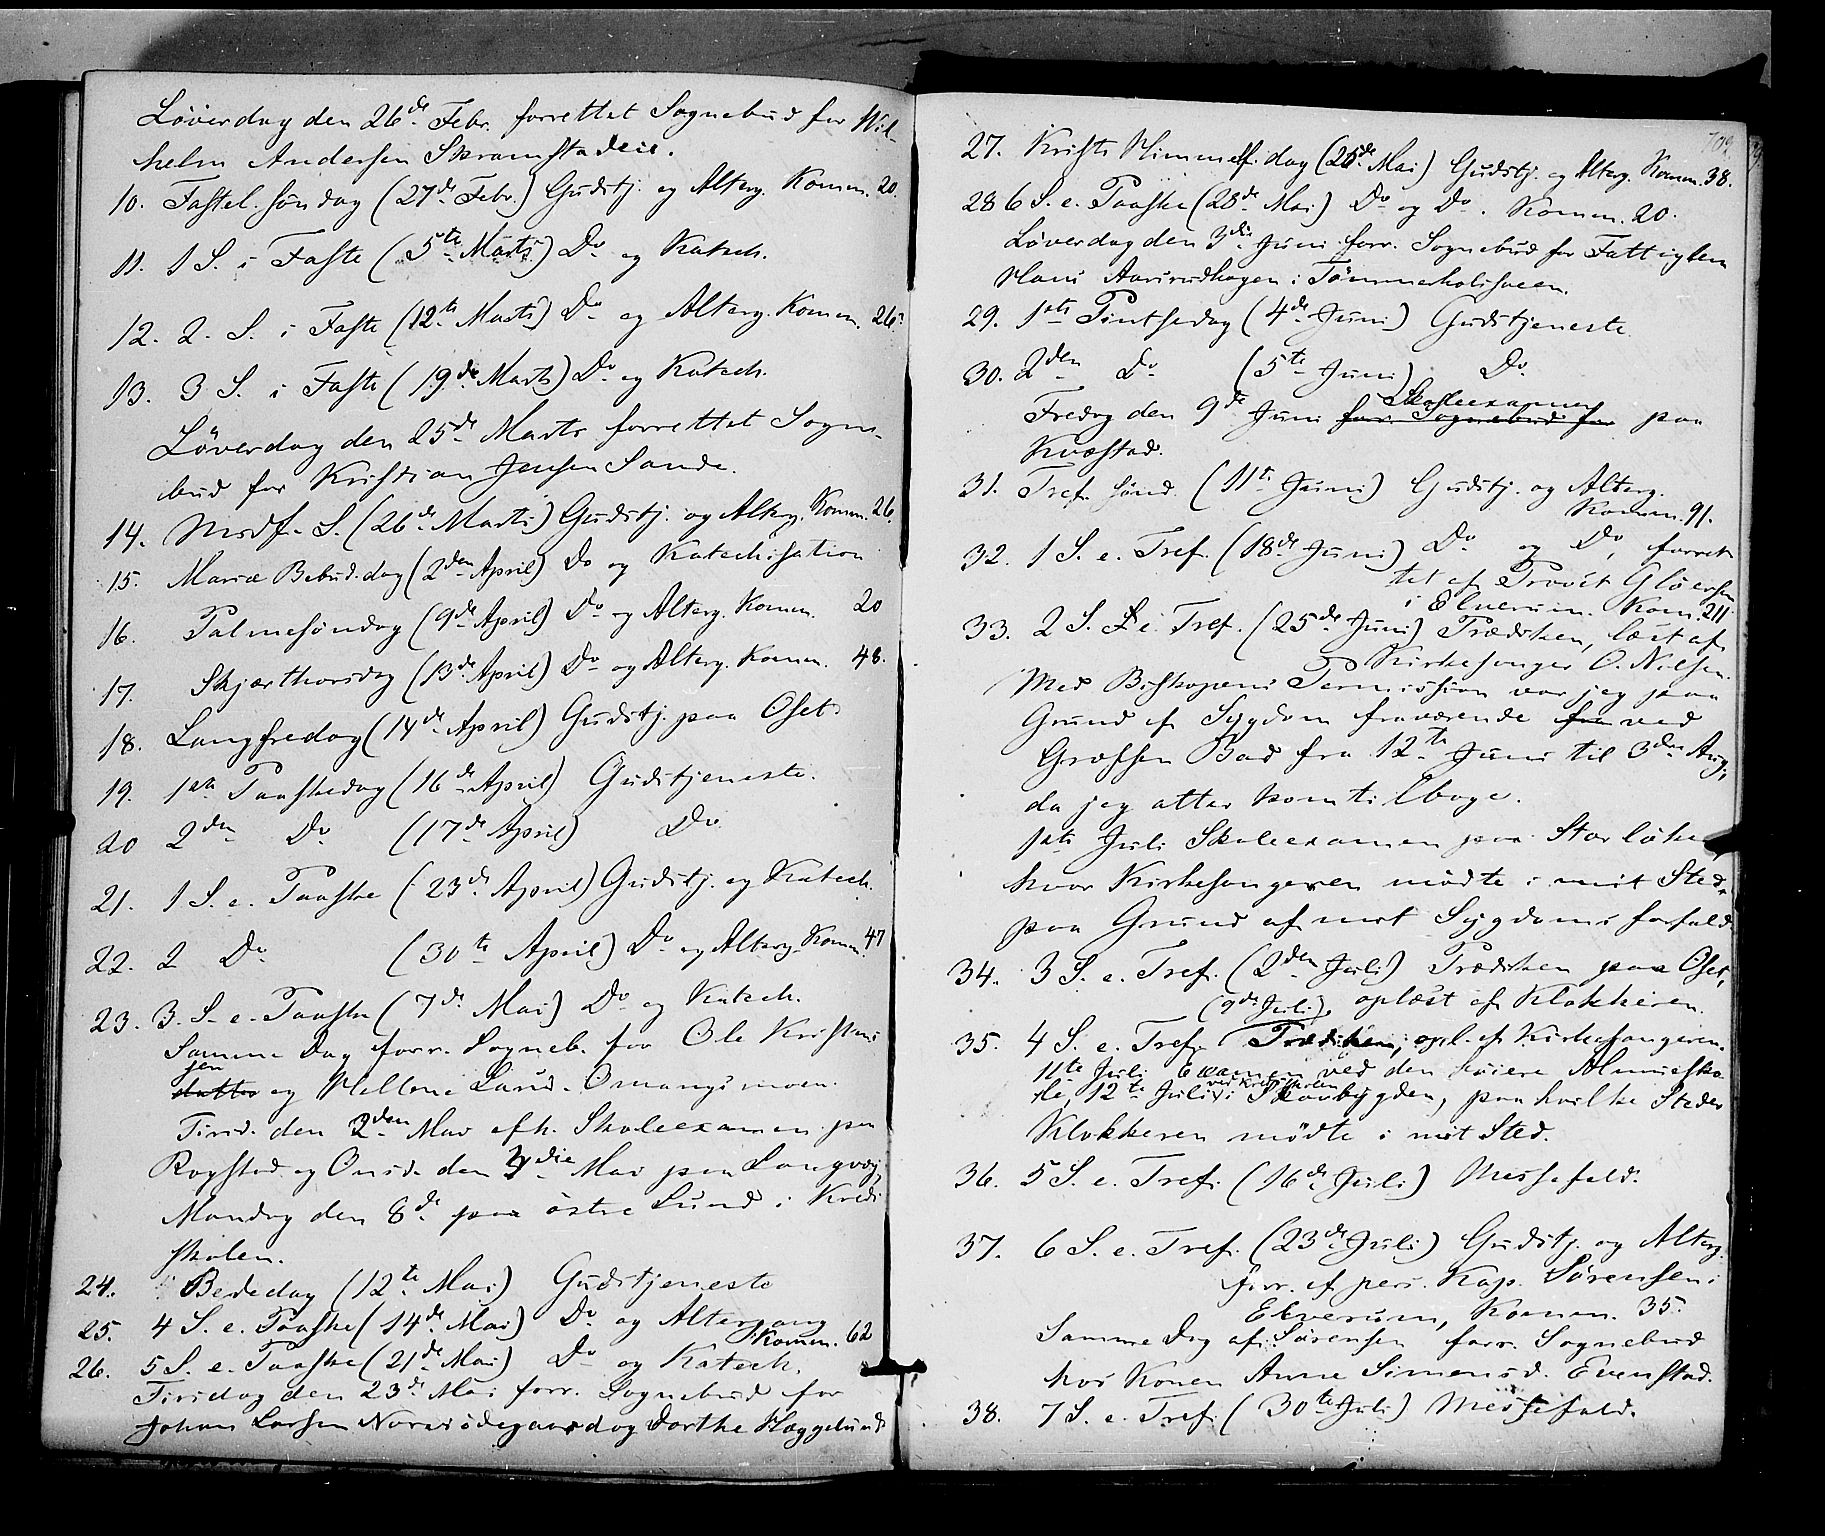 Löverdag den 26de Febr. forrettet Sognebud for Wil-
helm Andersen Skramstadeie.
10. Fastel. söndag (27de Febr.) Gudstj. og Alterg. Komm. 20.
11. 1 S. i Faste (5te Marts) Do og Katech.
12. 2. S. i Faste (12te Marts) Do og Alterg. Komm. 26.
13. 3 S. i Faste (19de Marts) Do og Katech.
Löverdag den 25de Marts forrettet Sogne-
bud for Kristian Jensen Sande.
14. Midf. S. (26de Marts) Gudstj. og Alterg. Komm. 26.
15. Mariæ Bebud. dag (2den April) Do og Katechisation
16. Palmesöndag (9de April) Do og Alterg. Komm. 20
17. Skjærthorsdag (13de April) Do og Alterg. Komm. 48.
18. Langfredag (14de April) Gudstj. paa Oset.
19. 1ste Paaskedag (16de April) Gudstjeneste.
20 2den Do (17de April) Do
21. 1 S. e. Paaske (23de April) Gudstj. og Katech.
22. 2 Do (30te April) Do og Alterg. Komm. 47
23. 3. S. e. Paaske (7de Mai) Do og Katech.
Samme Dag forr. Sogneb. for Ole Kristian
sen
datter og Hellene Larsd. Omangsmoen.
Tirsd. den 2den Mai afh. Skoleexamen paa
Rogstad og Onsd. den 3die Mai paa Langvej,
Mandag den 8de paa östre Lund i Kreds
skolen.
24. Bededag (12te Mai) Gudstjeneste
25. 4 S. e. Paaske (14de Mai) Do og Altergang
Komm. 62
26. 5 S. e. Paaske (21de Mai) Do og Katech.
Tirsdag den 23de Mai forr. Sognebud for
Johan Larsen og Dorthe Hæggelund
109
27. Kristi Himmelf. dag (25de Mai) Gudstj. og Alterg. Komm. 38.
28 6 S. e. Paaske (28de Mai) Do og Do. Komm. 20.
Löverdag den 3die Juni forr. Sognebud for Fattiglem
Hans Aasrudhagen i Tömmerholtsveen.
29. 1ste Pintsedag (4de Juni) Gudstjeneste
30. 2den Do (5te Juni) Do.
Skoleexamen
Fredag den 9de Juni forr. Sognebud for paa
Kvæstad.
31. Tref. sönd. (11te Juni) Gudstj. og Alterg.
Komm. 91.
32. 1 S. e. Tref. (18de Juni) Do og Do, forret-
tet af Provst Glöersen
i Elverum. Kom. 211
33. 2 S. e. Tref. (25de Juni) Prædiken, læst af
Kirkesanger O. Nilsen.
Med Biskopens Permission var jeg paa
Grund af Sygdom fraværende fra ved
Grefsen Bad fra 12te Juni til 3die Aug.
da jeg atter kom tilbage.
1ste Juli Skoleexamen paa Storlöken,
hvor Kirkesangeren mödte i mit Sted
paa Grund af mit Sygdoms forfald
34. 3 S. e. Tref. (2den Juli) Prædiken paa Oset,
oplæst af Klokkeren.
(9de Juli)
35. 4 S. e. Tref. Prædiken, opl. af Kirkesangeren.
11te Juli Examen ved den höiere Almuesko-
le, 12te Juli ved Kredsskolen i Skovbygden, paa hvilke Steder
Klokkeren mödte i mit Sted.
36. 5 S. e. Tref. (16de Juli) Messefald.
37. 6 S. e. Tref. (23de Juli) Gudstj. og Alterg.
forr. af pers. Kap. Sörensen i
Elverum, Komm. 35.
Samme Dag af Sörensen forr. Sognebud
hos Konen Anne Simensd. Evenstad.
38. 7 S. e. Tref. (30te Juli) Messefald.